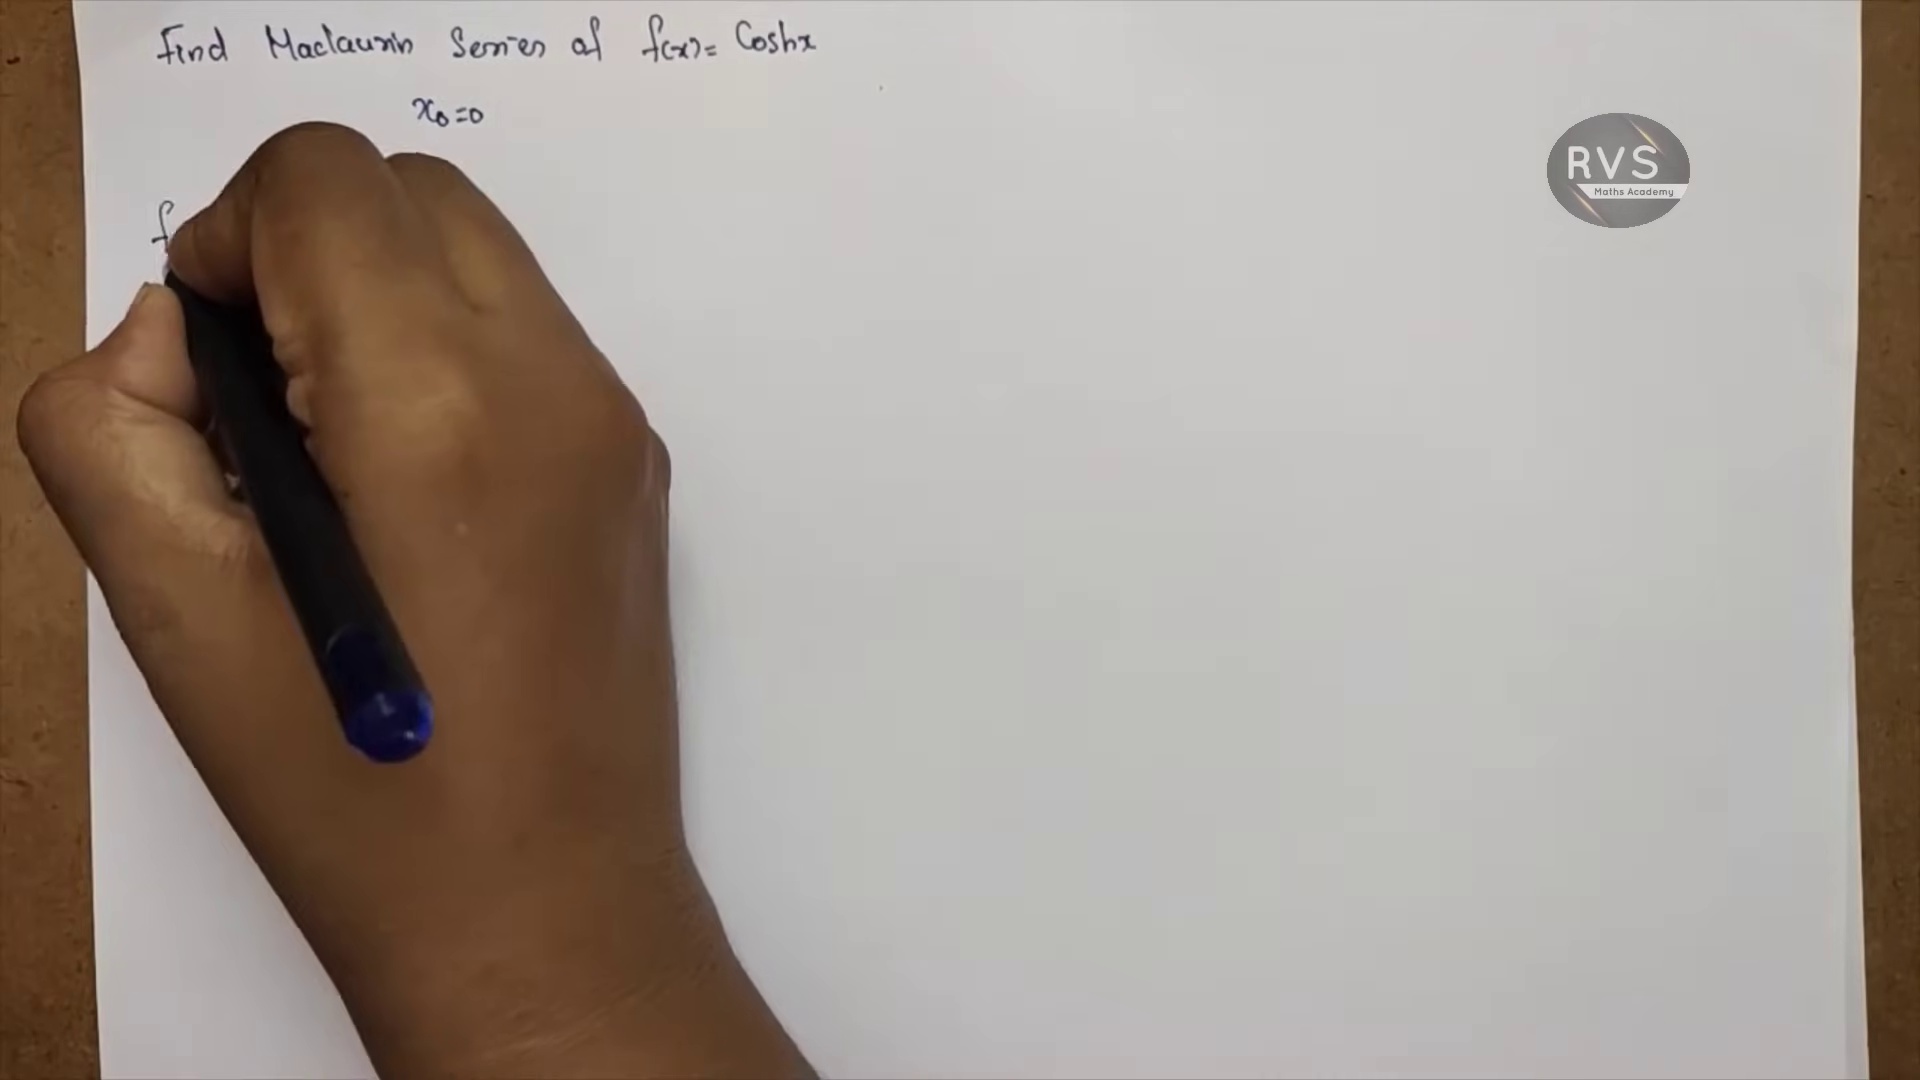 Find Maclaurin Series of f(x) = Coshx
x₀=0
f
RVS
Maths Academy